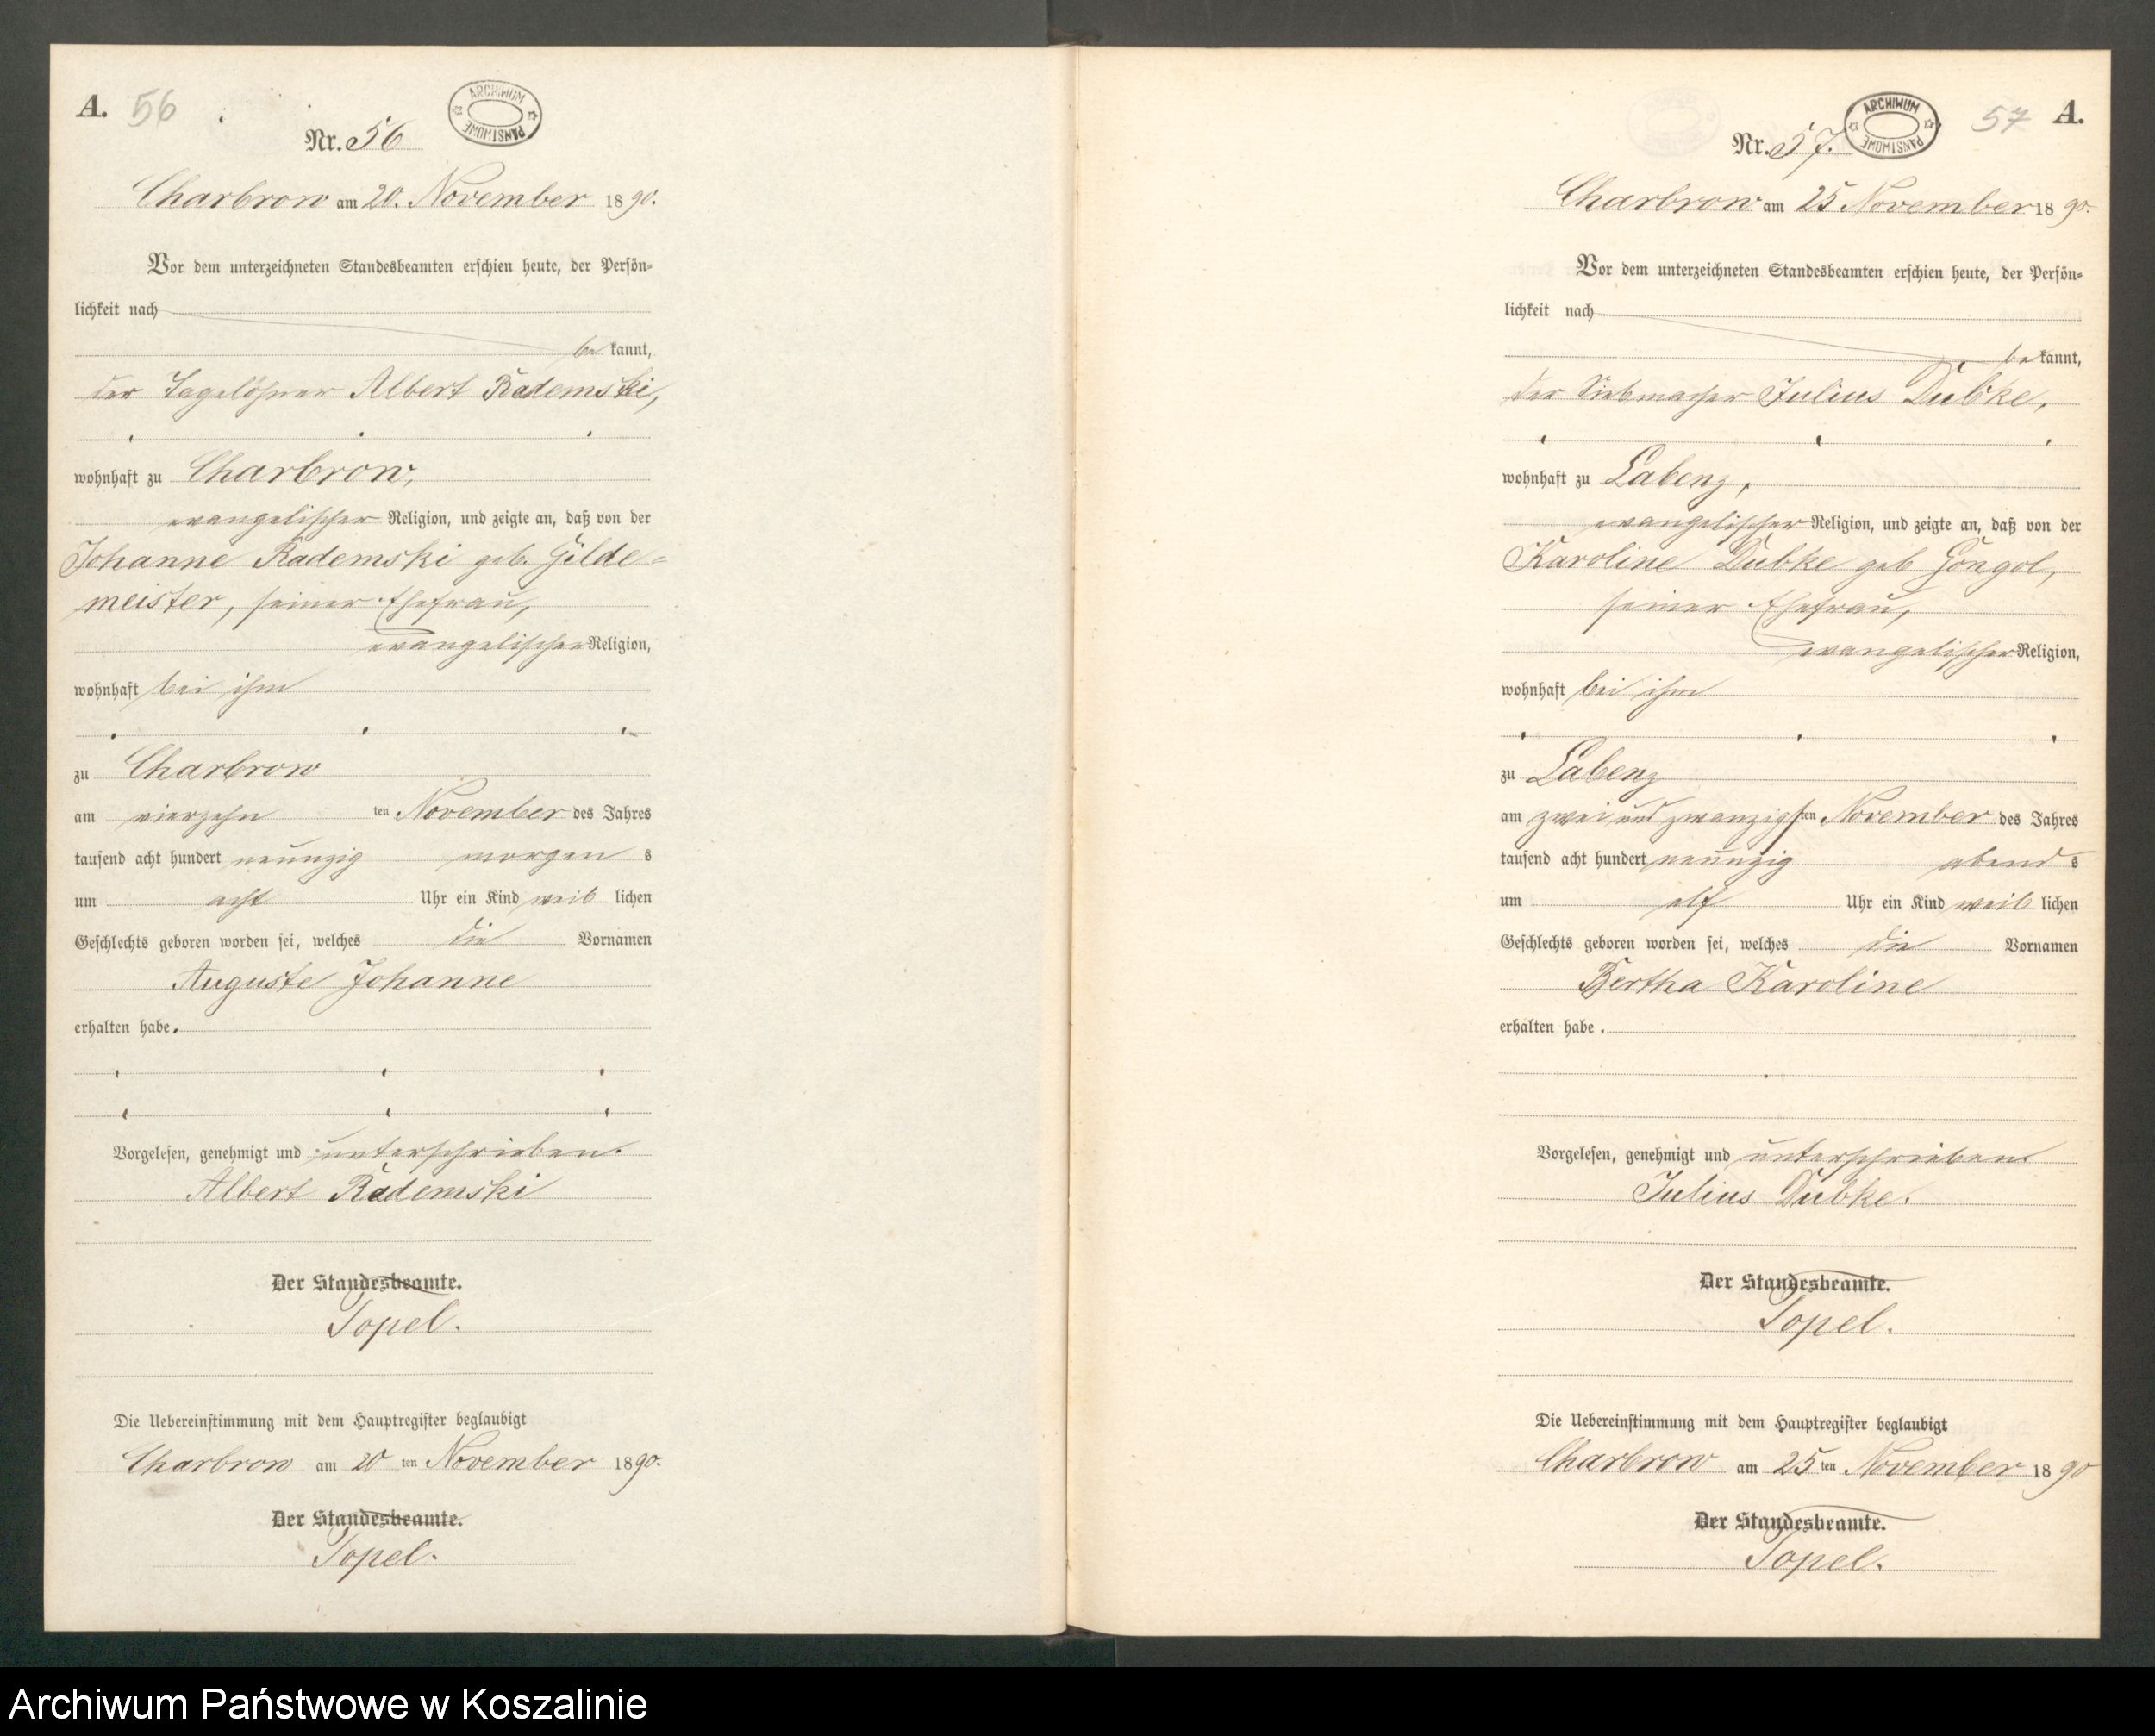 A. 56
ARCHIWUM PAŃSTWOWE
Nr. 56
Charbrow am 20. November 1890.
Vor dem unterzeichneten Standesbeamten erschien heute, der Persön-
lichkeit nach
be kannt,
der Tagelöhner Albert Rademski,
wohnhaft zu Charbrow,
evangelischer Religion, und zeigte an, daß von der
Johanne Rademski geb. Gilde-
meister, seiner Ehefrau,
evangelischer Religion,
wohnhaft bei ihm
zu Charbrow
am vierzehn ten November des Jahres
tausend acht hundert neunzig morgen s
um acht Uhr ein Kind weib lichen
Geschlechts geboren worden sei, welches die Vornamen
Auguste Johanne
erhalten habe.
Vorgelesen, genehmigt und unterschrieben.
Albert Rademski
Der Standesbeamte.
Topel.
Die Uebereinstimmung mit dem Hauptregister beglaubigt
Charbrow am 20 ten November 1890.
Der Standesbeamte.
Topel.
57 A.
ARCHIWUM PAŃSTWOWE
Nr. 57.
Charbrow am 25 November 1890.
Vor dem unterzeichneten Standesbeamten erschien heute, der Persön-
lichkeit nach
be kannt,
der Siebmacher Julius Dubke,
wohnhaft zu Labenz,
evangelischer Religion, und zeigte an, daß von der
Karoline Dubke geb Gongol,
seiner Ehefrau,
evangelischer Religion,
wohnhaft bei ihm
zu Labenz
am zwei und zwanzigsten November des Jahres
tausend acht hundert neunzig abend s
um elf Uhr ein Kind weib lichen
Geschlechts geboren worden sei, welches die Vornamen
Bertha Karoline
erhalten habe.
Vorgelesen, genehmigt und unterschrieben
Julius Dubke.
Der Standesbeamte.
Topel.
Die Uebereinstimmung mit dem Hauptregister beglaubigt
Charbrow am 25 ten November 1890
Der Standesbeamte.
Topel.
Archiwum Państwowe w Koszalinie